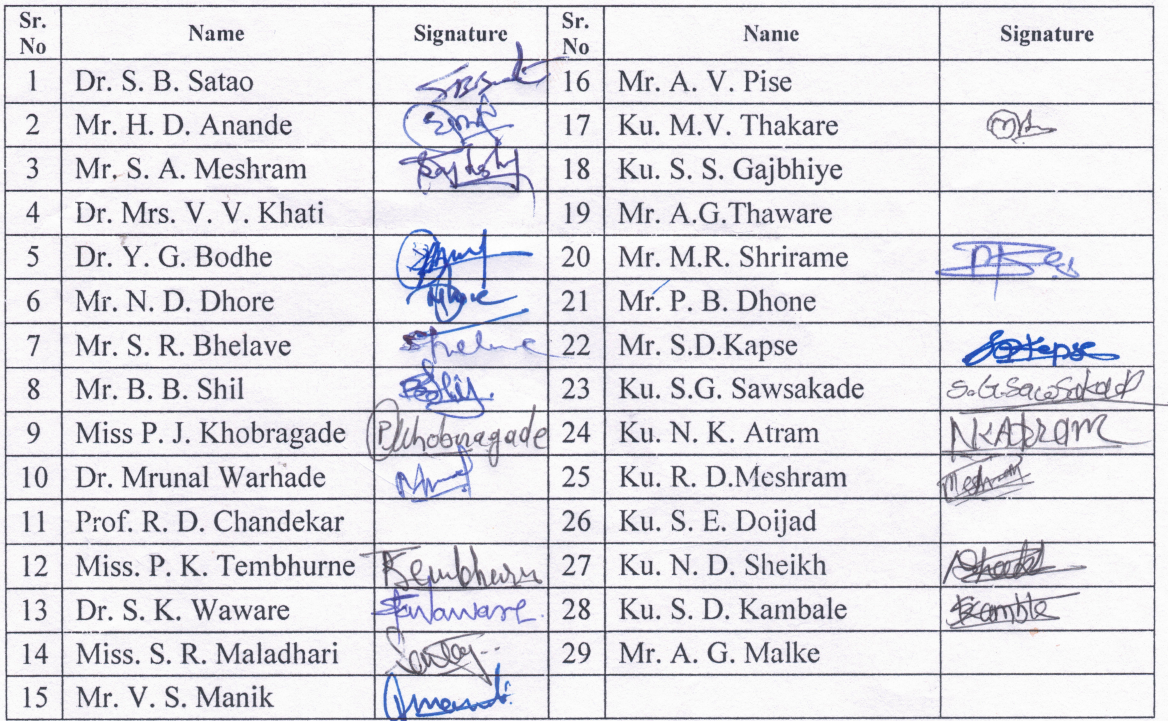 Sr. No Name Signature Sr. No Name Signature
1 Dr. S. B. Satao 16 Mr. A. V. Pise
2 Mr. H. D. Anande 17 Ku. M.V. Thakare
3 Mr. S. A. Meshram 18 Ku. S. S. Gajbhiye
4 Dr. Mrs. V. V. Khati 19 Mr. A.G.Thaware
5 Dr. Y. G. Bodhe 20 Mr. M.R. Shrirame
6 Mr. N. D. Dhore 21 Mr. P. B. Dhone
7 Mr. S. R. Bhelave 22 Mr. S.D.Kapse SDKapse
8 Mr. B. B. Shil 23 Ku. S.G. Sawsakade S.G.Sawsakade
9 Miss P. J. Khobragade PKhobragade 24 Ku. N. K. Atram NKAtram
10 Dr. Mrunal Warhade 25 Ku. R. D.Meshram Meshram
11 Prof. R. D. Chandekar 26 Ku. S. E. Doijad
12 Miss. P. K. Tembhurne 27 Ku. N. D. Sheikh
13 Dr. S. K. Waware 28 Ku. S. D. Kambale Skamble
14 Miss. S. R. Maladhari 29 Mr. A. G. Malke
15 Mr. V. S. Manik